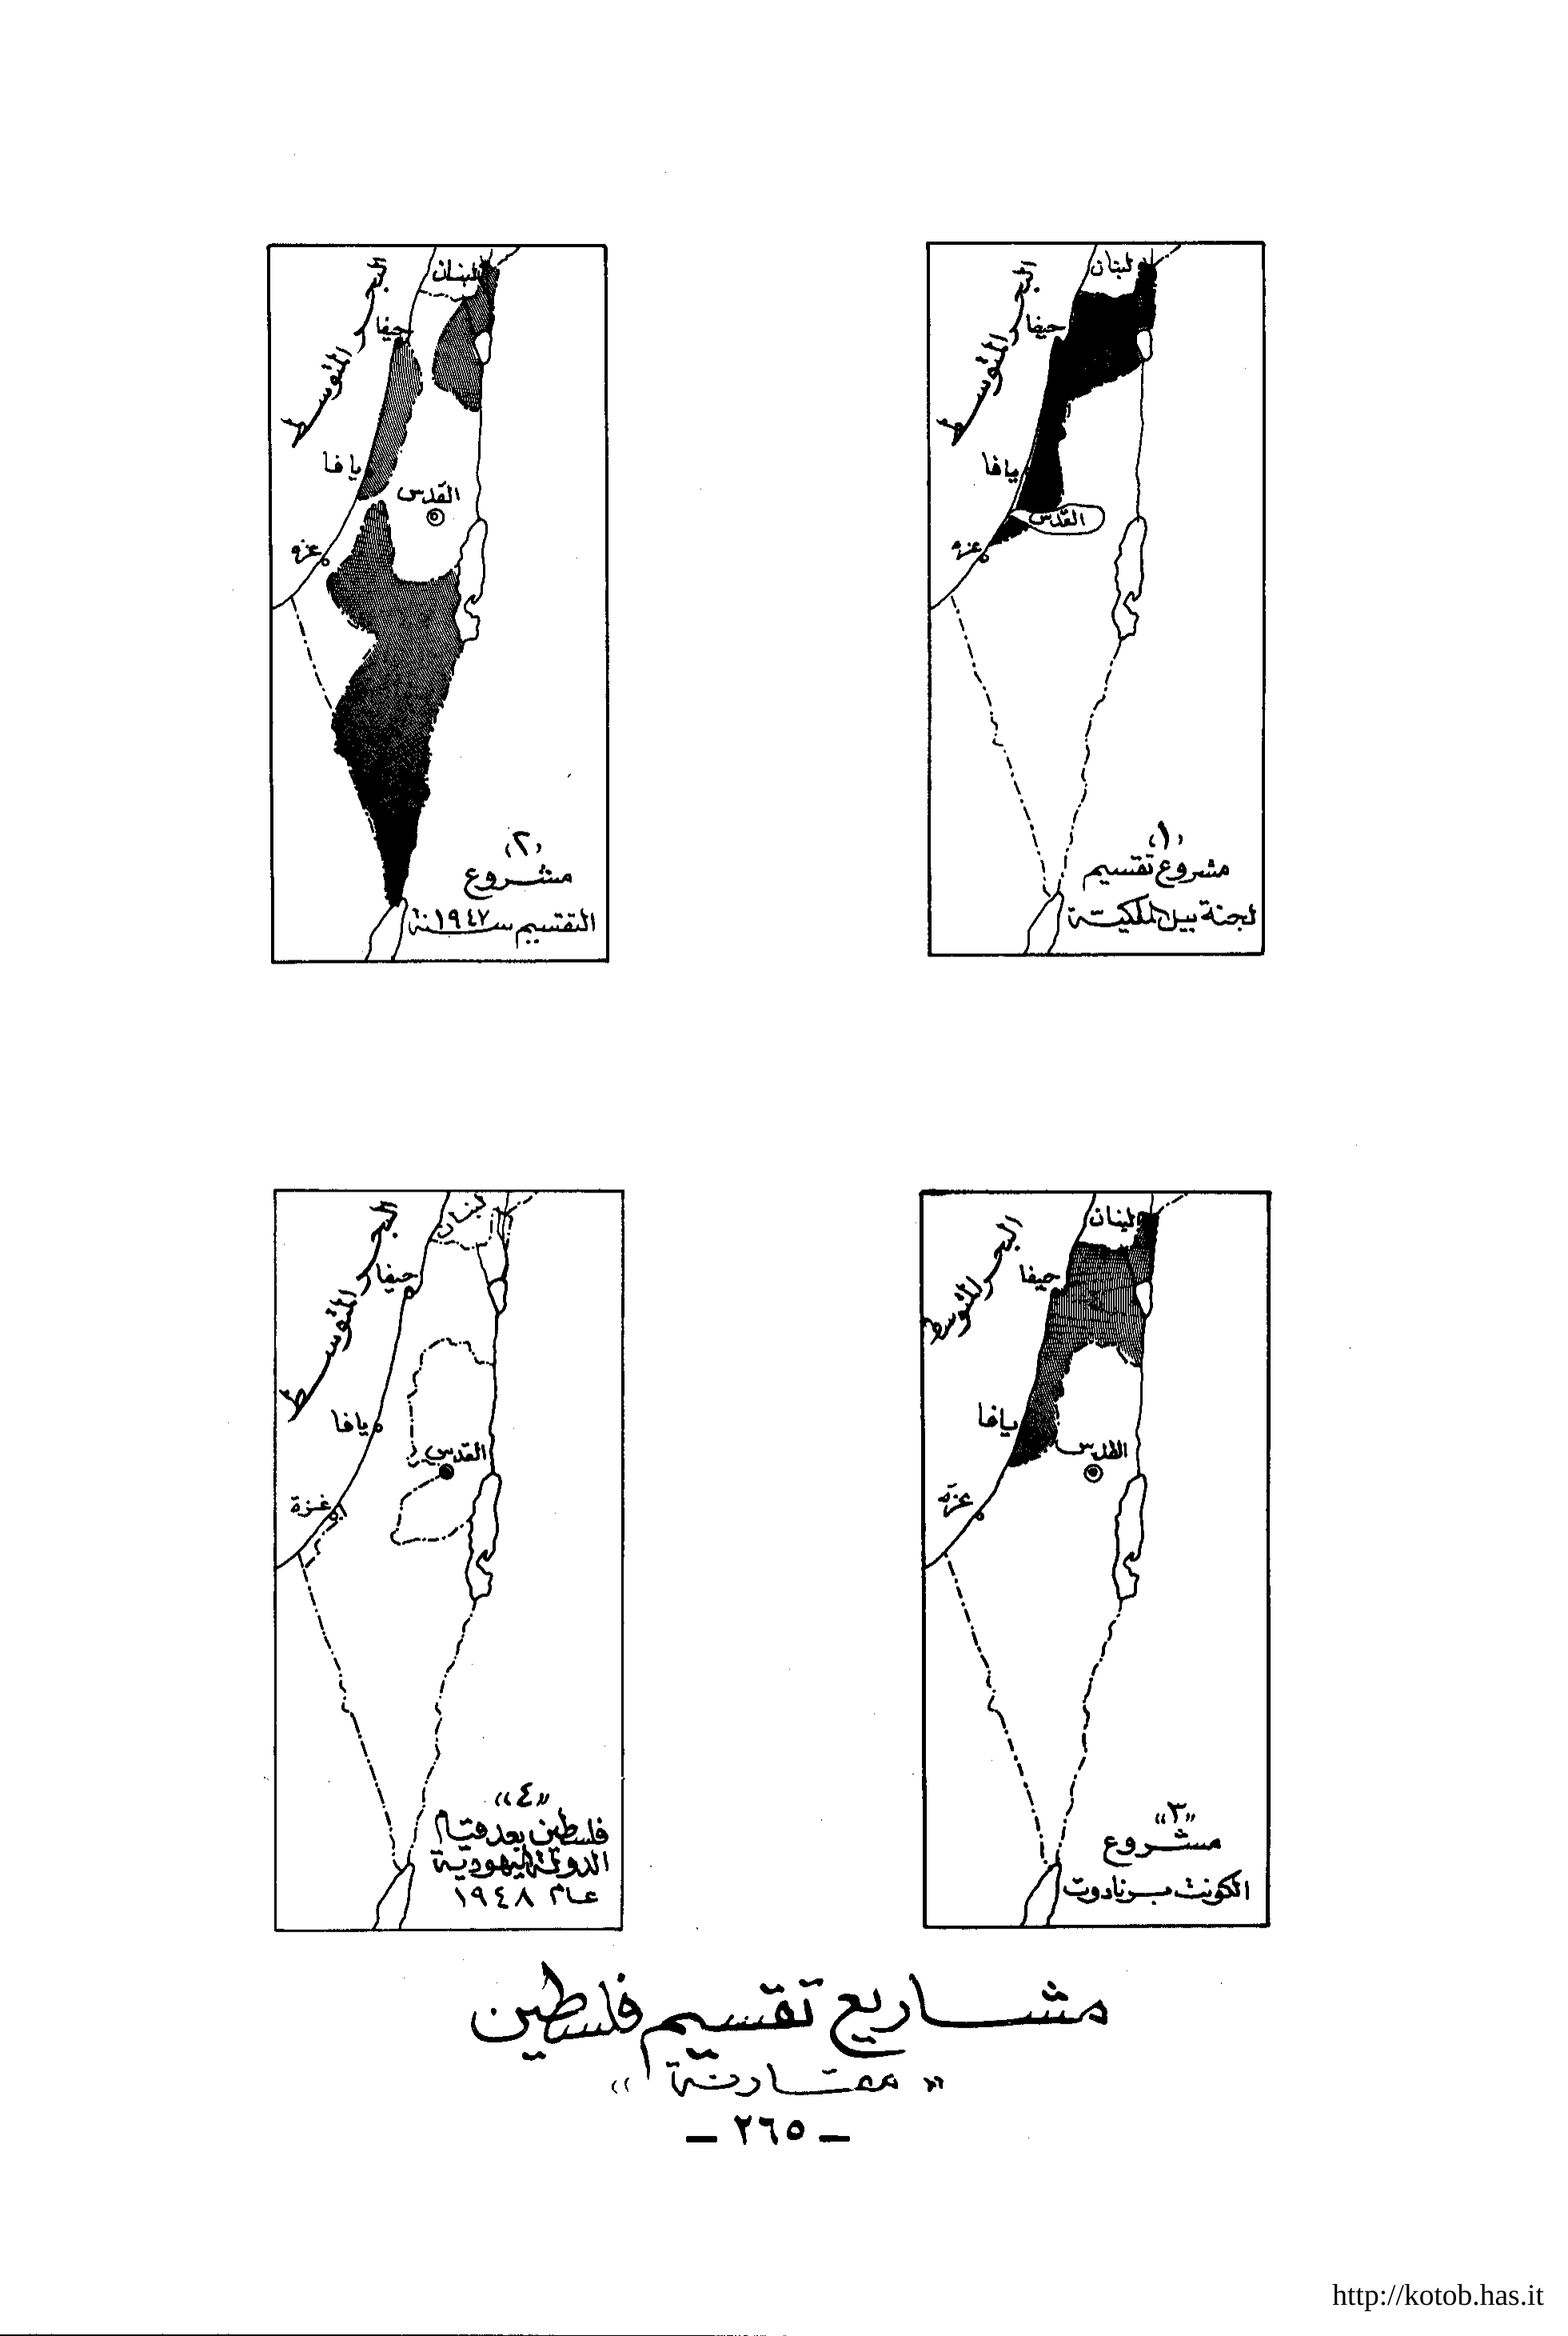 لبنان
البحر المتوسط
حيفا
يافا
القدس
غزه
(١)
مشروع تقسيم
لجنة بيل الملكية
لبنان
البحر المتوسط
حيفا
يافا
القدس
غزه
(٢)
مشروع
التقسيم سنة ١٩٤٧
لبنان
البحر المتوسط
حيفا
يافا
القدس
غزة
«٣»
مشروع
الكونت برنادوت
لبنان
البحر المتوسط
حيفا
يافا
القدس
غزة
«٤»
فلسطين بعد قيام
الدولة اليهودية
عام ١٩٤٨
مشاريع تقسيم فلسطين
«مقارنة»
— ٢٦٥ —
http://kotob.has.it